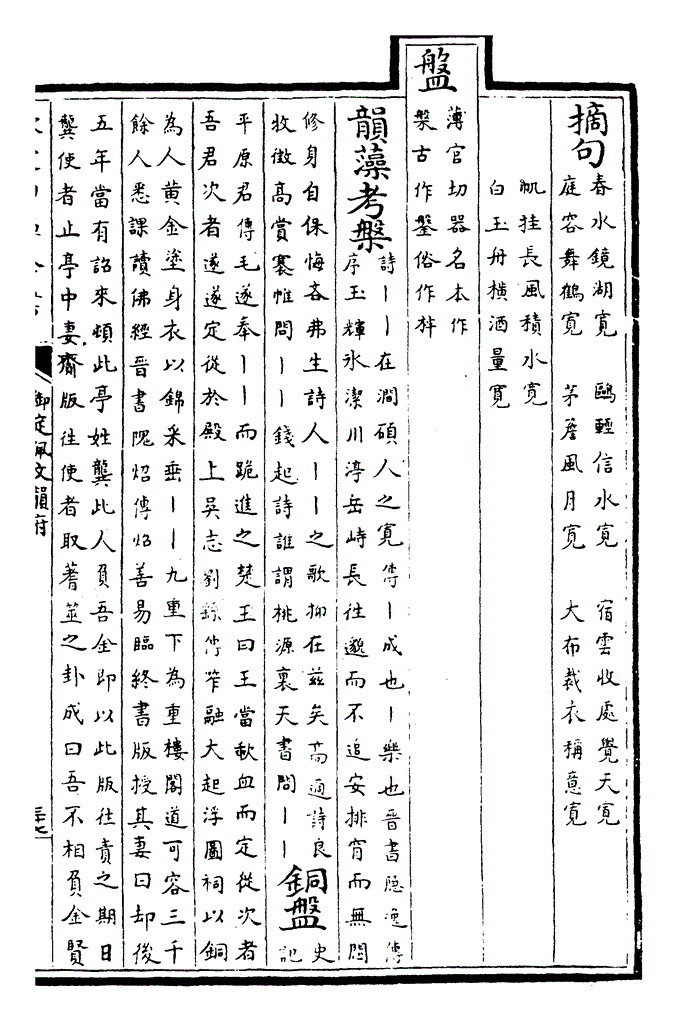 摘句
春水鏡湖寛　鷗輕信水寛　宿雲收處覺天寛
庭容舞鶴寛　茅簷風月寛　大布裁衣稱意寛
帆挂長風積水寛
白玉舟横酒量寛
盤
薄官切器名本作
槃古作鎜俗作柈
韻藻考槃
詩丨丨在澗碩人之寛傳丨成也丨樂也晋書隱逸傳
序玉輝氷潔川渟岳峙長往邈而不追安排窅而無悶
修身自保悔吝弗生詩人丨丨之歌抑在兹矣高適詩良
牧徴高賞褰帷問丨丨錢起詩誰謂桃源裏天書問丨丨
銅盤
史
記
平原君傳毛遂奉丨丨而跪進之楚王曰王當歃血而定從次者
吾君次者遂遂定從於殿上吳志劉繇傳笮融大起浮圖祠以銅
為人黄金塗身衣以錦采垂丨丨九重下為重樓閣道可容三千
餘人悉課讀佛經晉書隗炤傳炤善易臨終書版授其妻曰却後
五年當有詔來頓此亭姓龔此人負吾金即以此版往責之期日
龔使者止亭中妻齎版往使者取蓍筮之卦成曰吾不相負金賢
御定佩文韻府